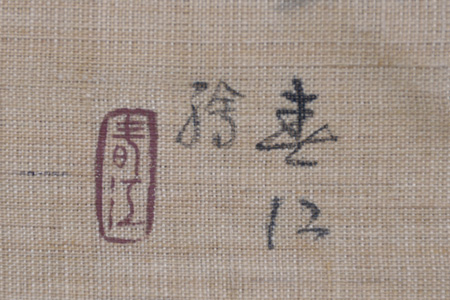 春江
繪
春江